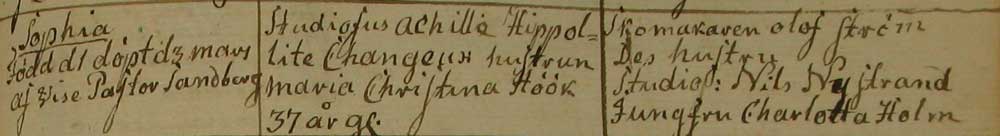 Sophia
född d 1 döpt d 3 mars
af Vise Pastor Sandberg
Studiosus Achille Hippol=
lite Changeux hustrun
Maria Christina Höök
37 år gl.
Skomakaren Olof Ström
Des hustru
Studios: Nils Nystrand
Jungfru Charlotta Holm